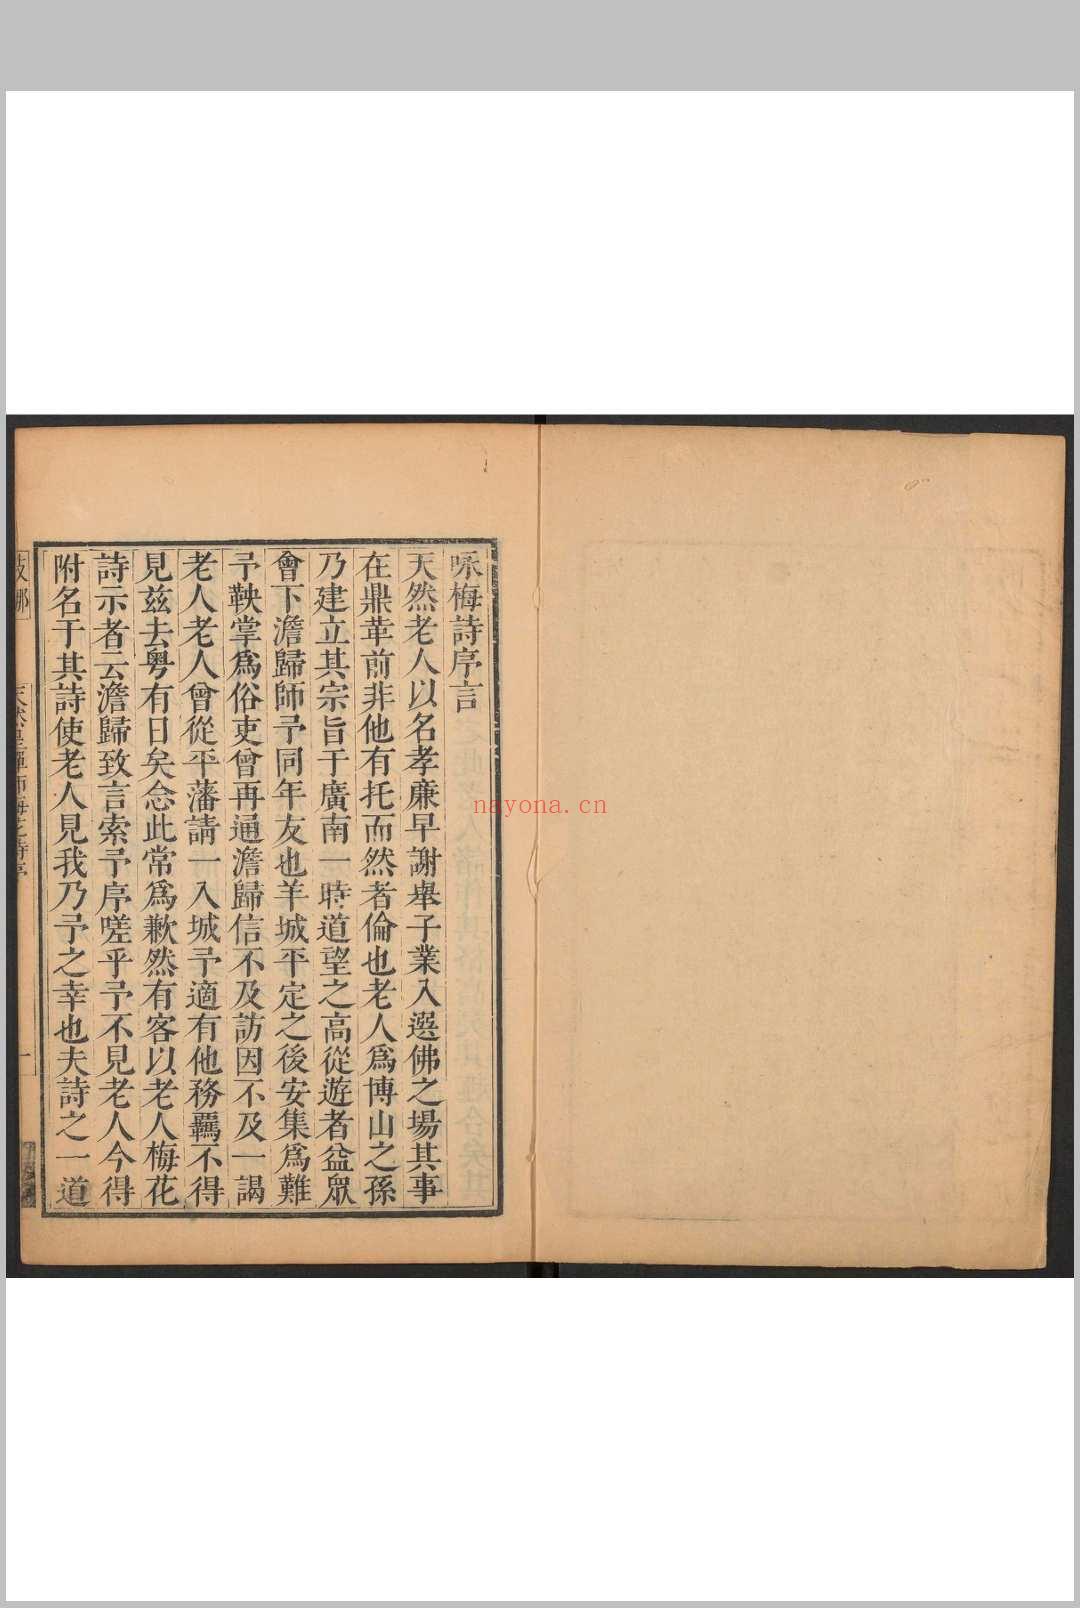 咏梅詩序言
天然老人以名孝廉早謝舉子業入選佛之場其事
在鼎革前非他有托而然者倫也老人爲博山之孫
乃建立其宗旨于廣南一時道望之高從遊者益眾
會下澹歸師予同年友也羊城平定之後安集爲難
予鞅掌爲俗吏曾再通澹歸信不及訪因不及一謁
老人老人曾從平藩請一入城予適有他務羈不得
見茲去粵有日矣念此常爲歉然有客以老人梅花
詩示者云澹歸致言索予序嗟乎予不見老人今得
附名于其詩使老人見我乃予之幸也夫詩之一道
天然昰禪師梅花詩序
一
nayona.cn